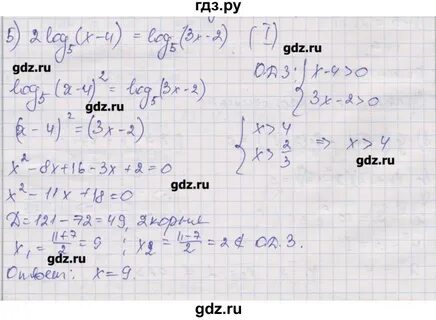 гдз.ру
5) 2 log₅(x-4) = log₅(3x-2) (I)
log₅(x-4)² = log₅(3x-2) ОДЗ: { x-4>0
3x-2>0
(x-4)² = (3x-2) { x>4
x>2/3 ⇒ x>4
x²-8x+16-3x+2=0
x²-11x+18=0
D=121-72=49, 2 корня
x₁=(11+7)/2=9 ; x₂=(11-7)/2=2∉ОДЗ.
Ответ: x=9.
гдз.ру